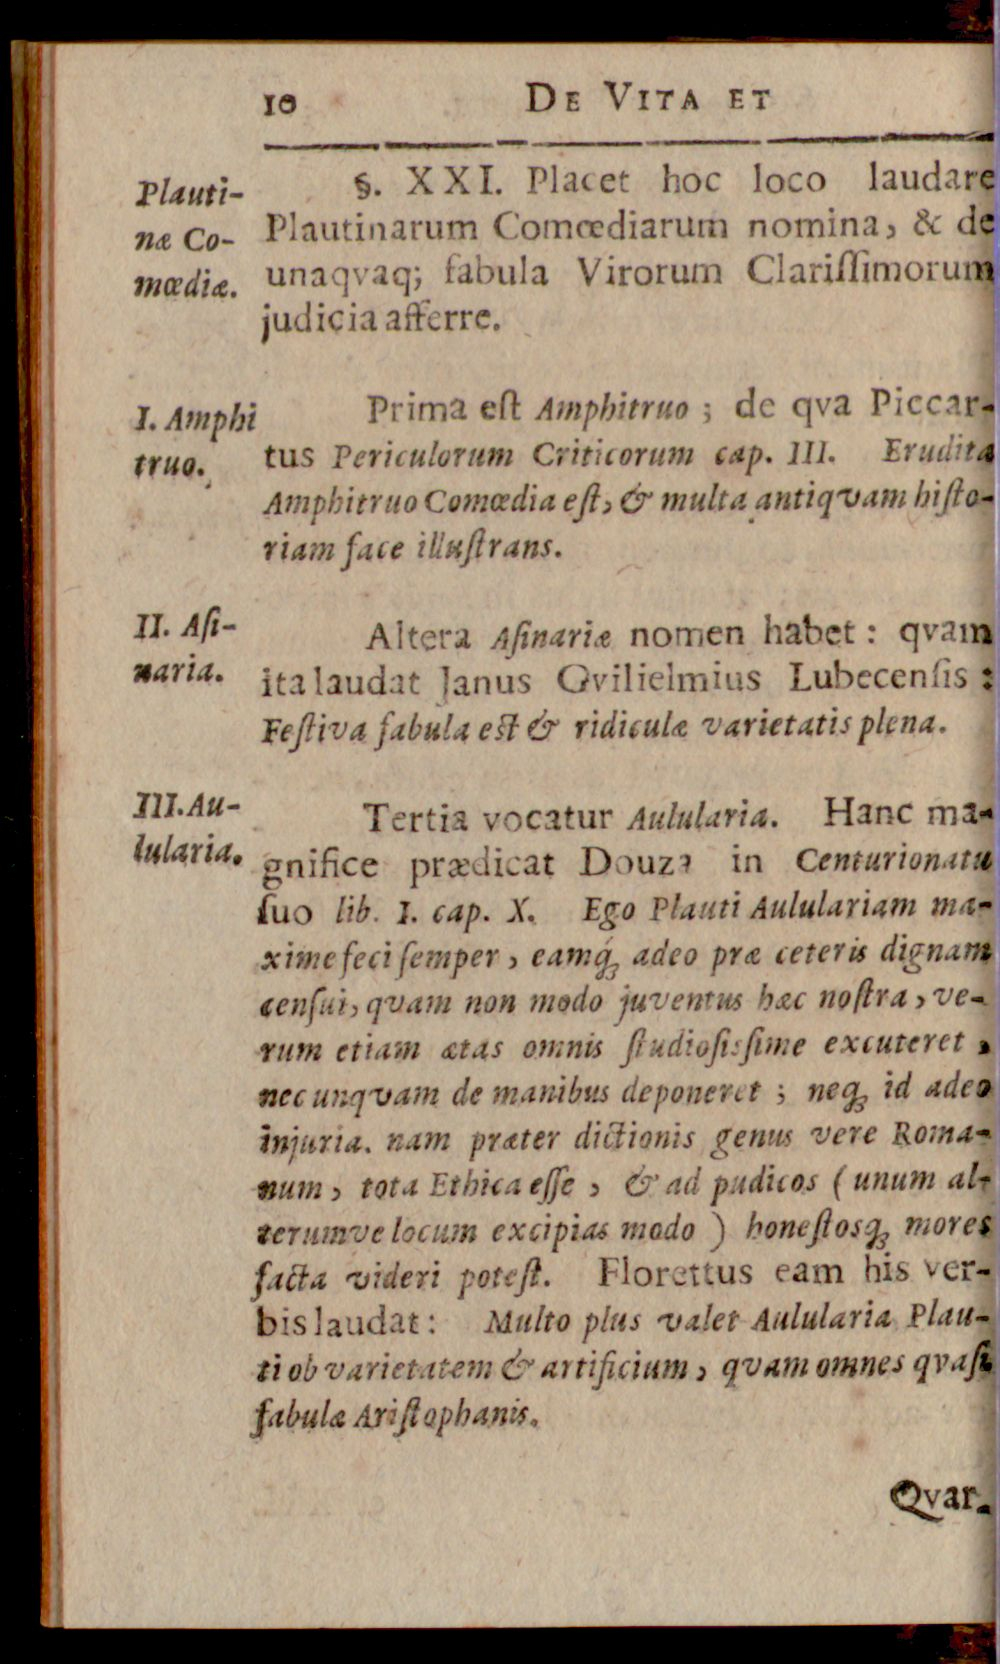 10 DE VITA ET
Plauti-
næ Co-
mœdiæ.
§. XXI. Placet hoc loco laudare
Plautinarum Comœdiarum nomina, & de
unaqvaq; fabula Virorum Clariſſimorum
judicia afferre.
I. Amphi
truo.
Prima eſt Amphitruo ; de qva Piccar-
tus Periculorum Criticorum cap. III. Erudita
Amphitruo Comœdia eſt, & multa antiqvam hiſto-
riam face illuſtrans.
II. Aſi-
naria.
Altera Aſinariæ nomen habet : qvam
ita laudat Janus Gvilielmius Lubecenſis :
Feſtiva fabula est & ridiculæ varietatis plena.
III. Au-
lularia.
Tertia vocatur Aulularia. Hanc ma-
gnifice prædicat Douza in Centurionatu
ſuo lib. I. cap. X. Ego Plauti Aululariam ma-
xime feci ſemper, eamq́; adeo præ ceteris dignam
cenſui, qvam non modo juventus hæc noſtra, ve-
rum etiam ætas omnis ſtudioſisſime excuteret,
nec unqvam de manibus deponeret ; neq; id adeo
injuria. nam præter dictionis genus vere Roma-
num, tota Ethica eſſe, & ad pudicos ( unum al-
terumve locum excipias modo ) honeſtosq; mores
facta videri poteſt. Florettus eam his ver-
bis laudat : Multo plus valet Aulularia Plau-
ti ob varietatem & artificium, qvam omnes qvaſi
fabulæ Ariſtophanis.
Qvar-